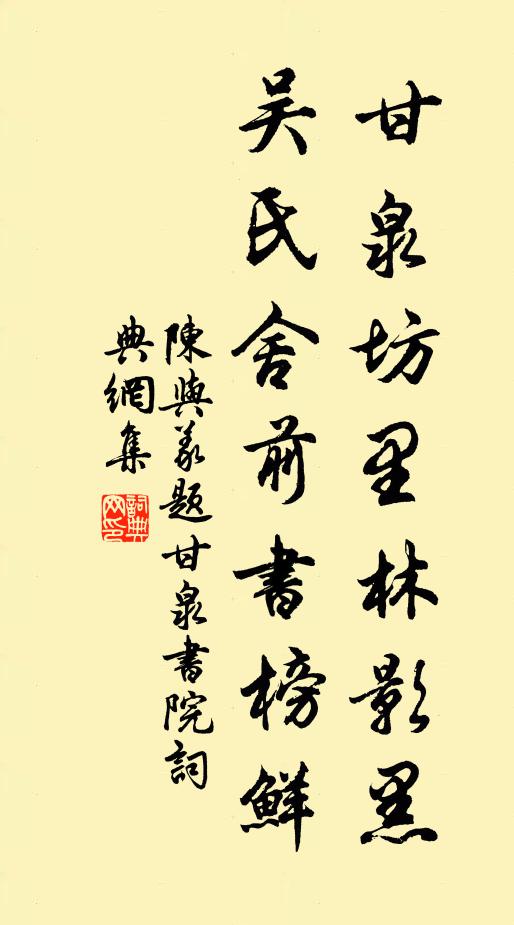 甘泉坊里林影黑
吴氏舍前書榜鮮
陳與義題甘泉書院詞
典網集
詞典
网印